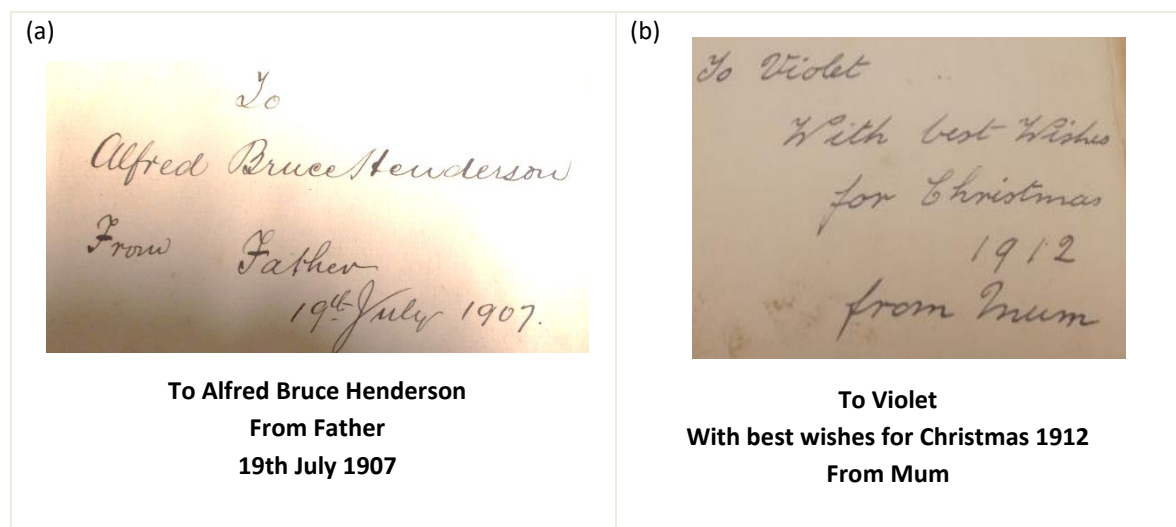 (a)
To
Alfred Bruce Henderson
From Father
19th July 1907.
To Alfred Bruce Henderson
From Father
19th July 1907
(b)
To Violet
With best Wishes
for Christmas
1912
from Mum
To Violet
With best wishes for Christmas 1912
From Mum